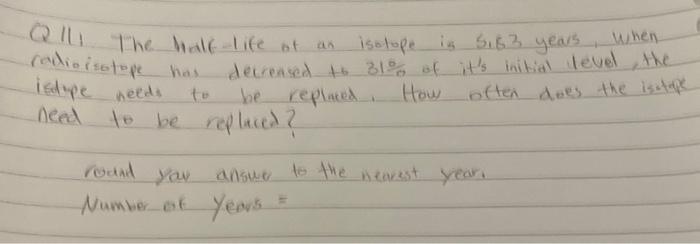 Q 11. The half-life of an isotope is 5.53 years, When
radioisotope has decreased to 31% of it's initial level, the
isotope needs to be replaced. How often does the isotope
need to be replaced?
round your answer to the nearest year.
Number of Years =